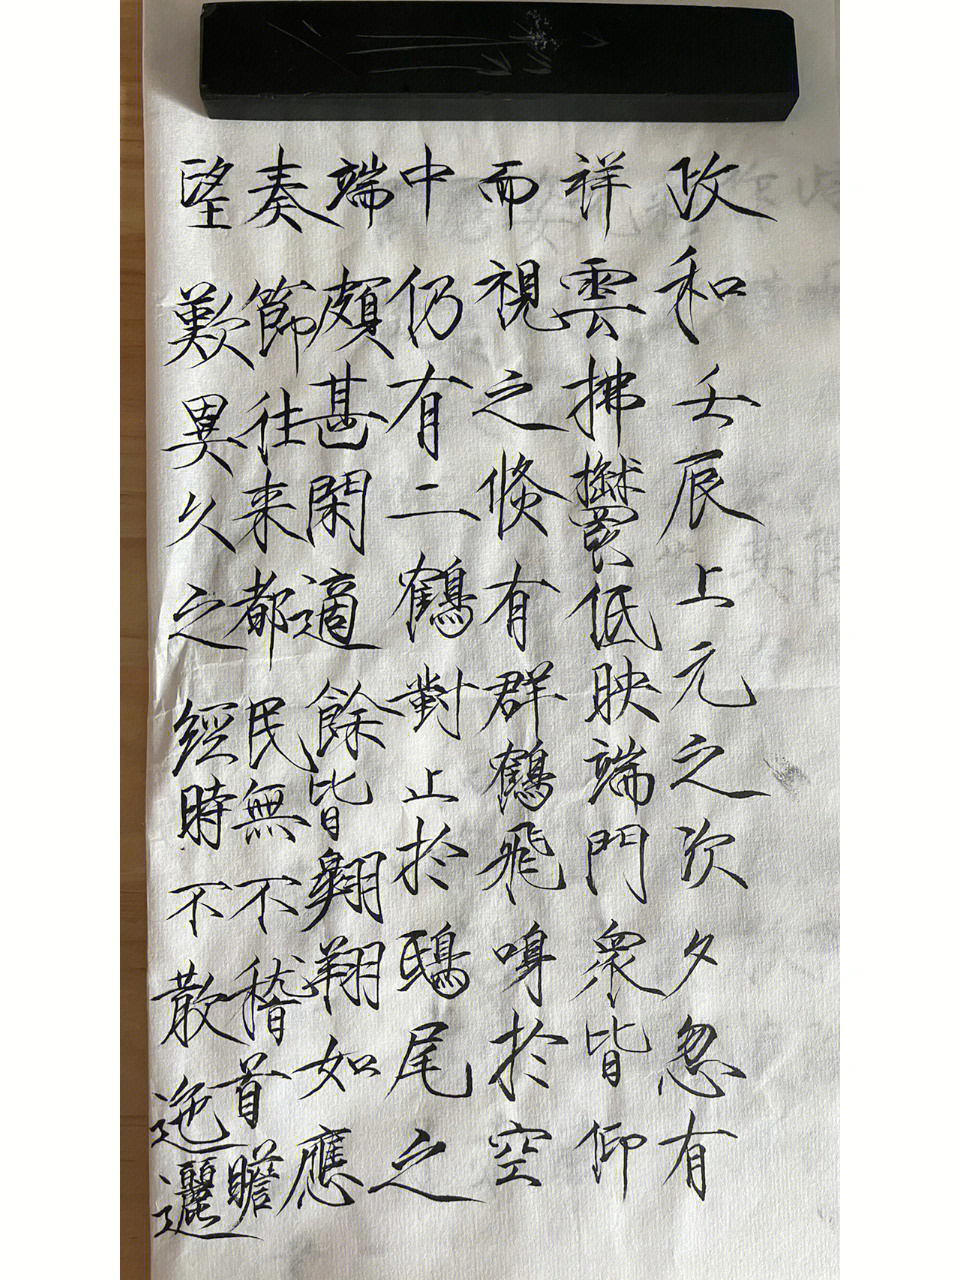 政和壬辰上元之次夕忽有
祥雲拂鬱低映端門衆皆仰
而視之倏有群鶴飛鳴於空
中仍有二鶴對止於鴟尾之
端頗甚閑適餘皆翱翔如應
奏節往来都民無不稽首瞻
望歎異久之經時不散迤邐